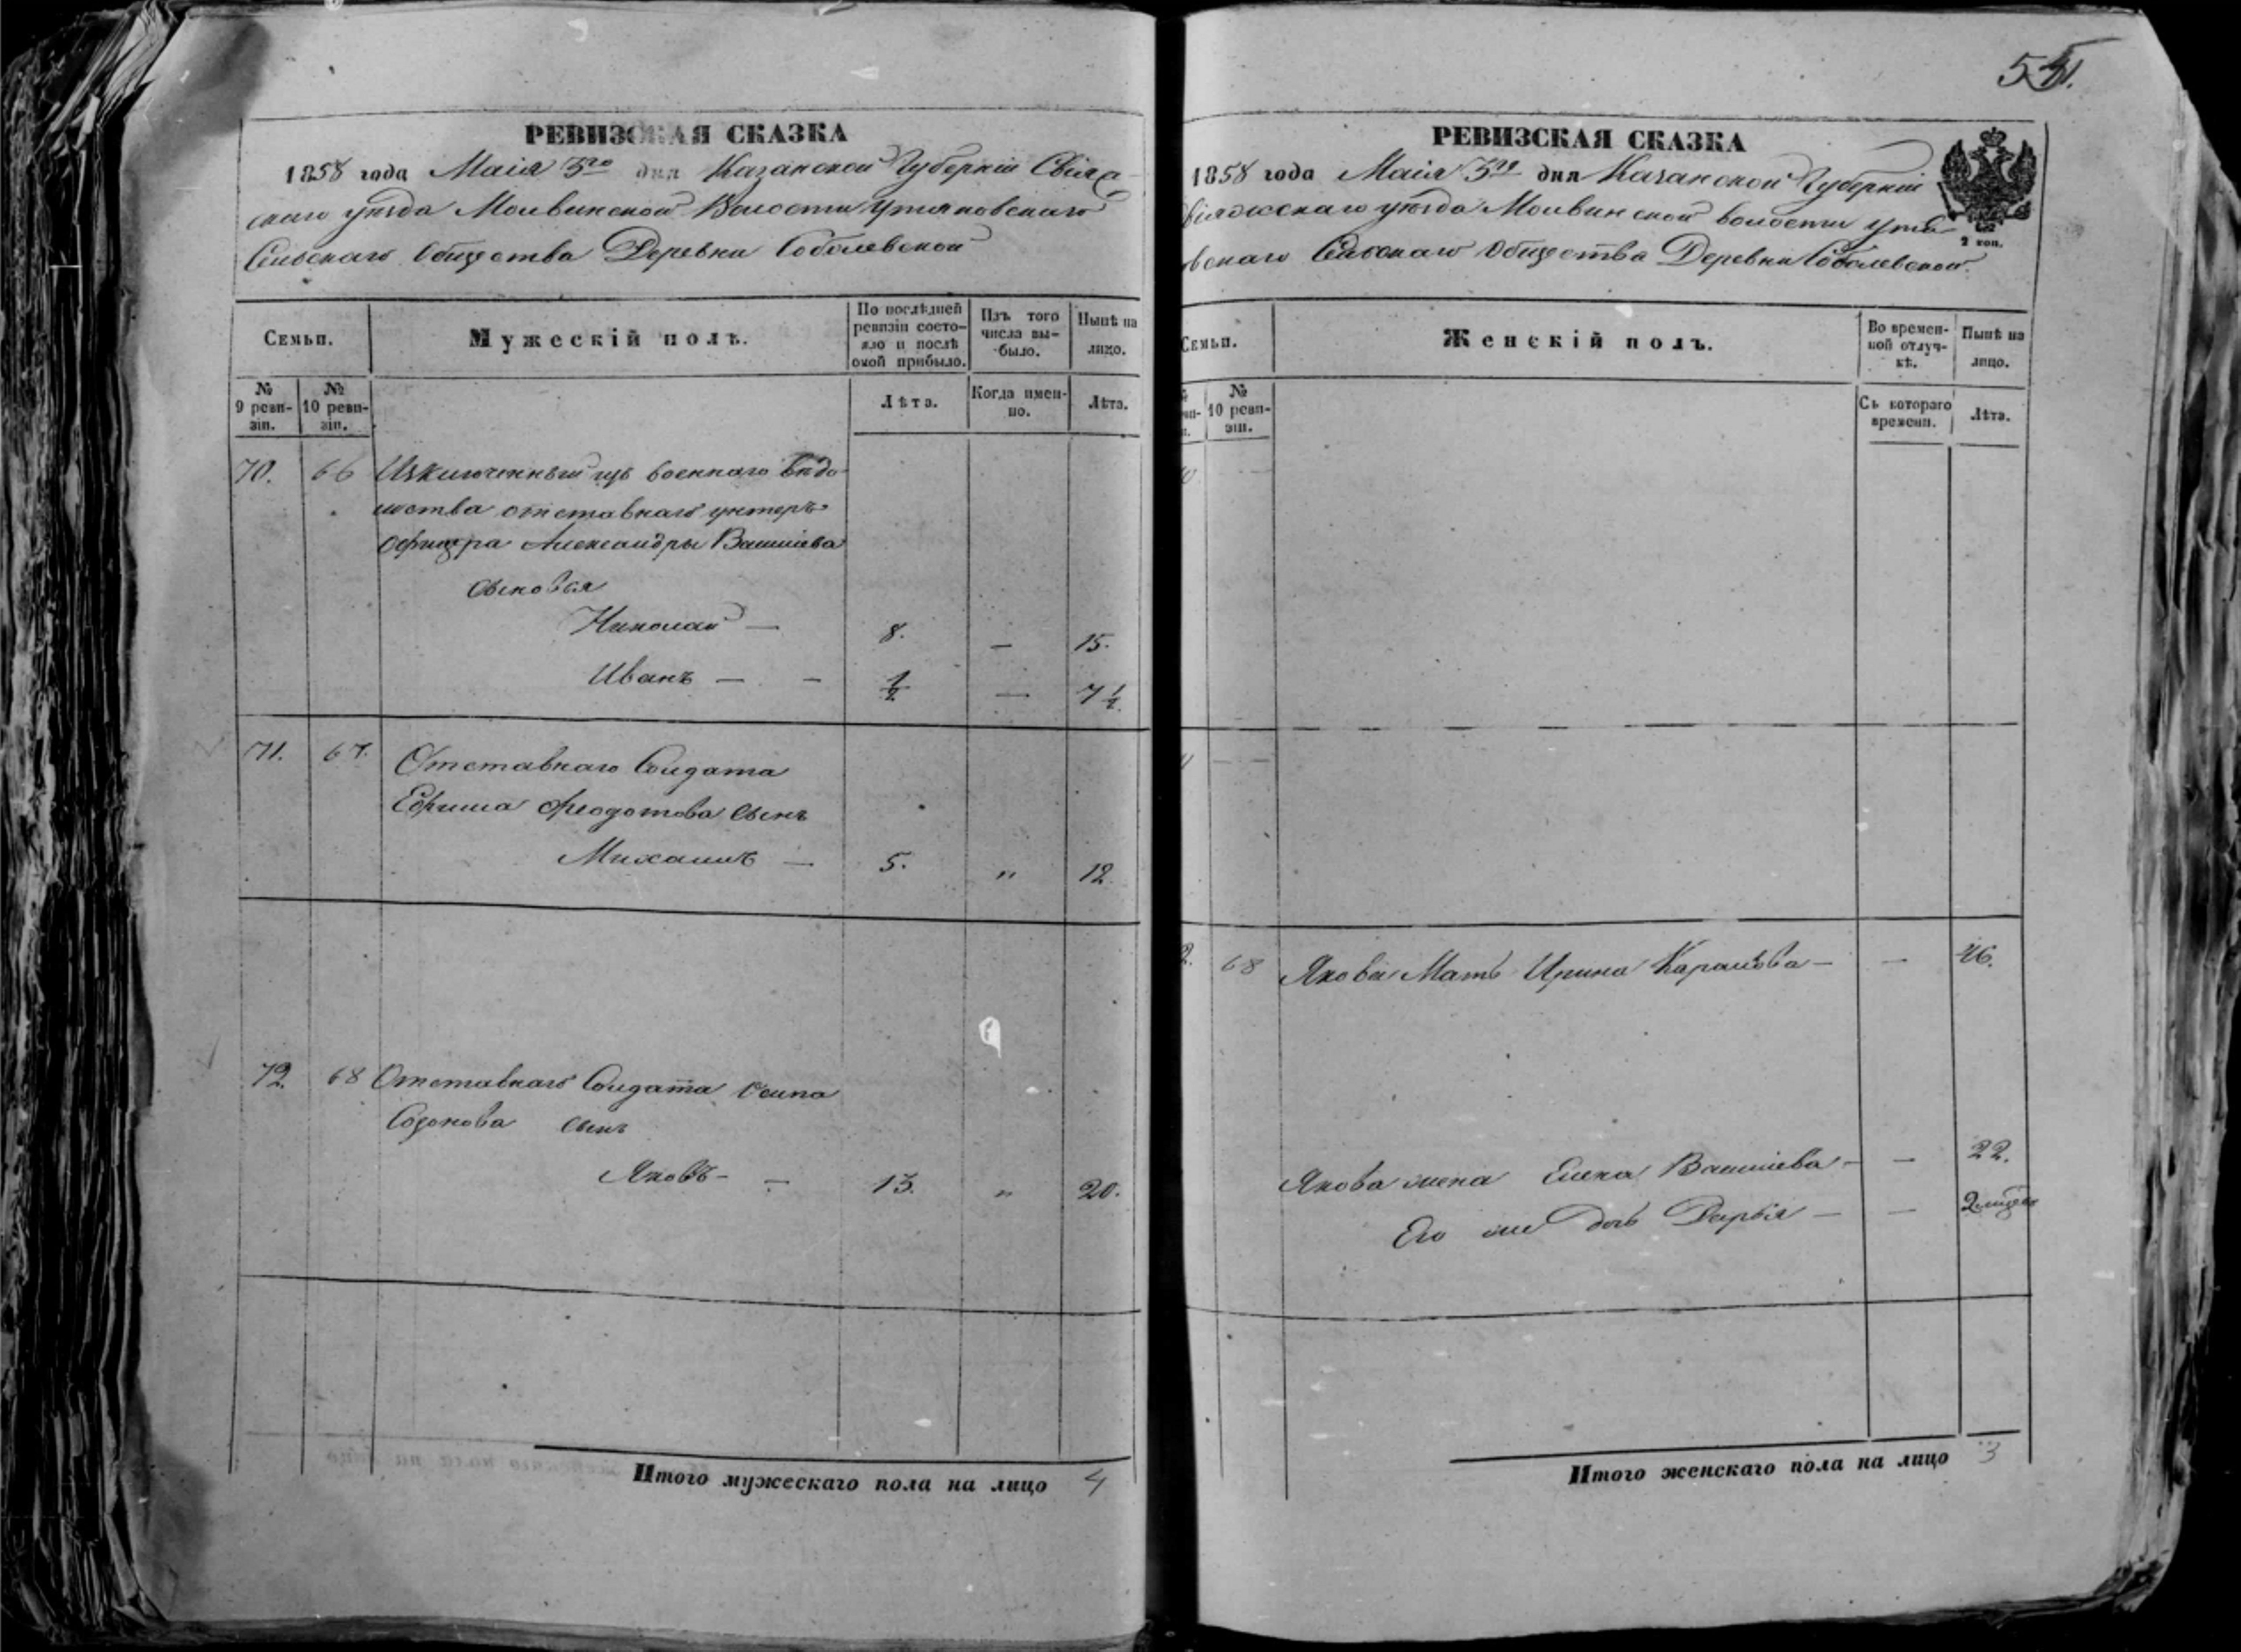 РЕВИЗСКАЯ СКАЗКА
1858 года Маія 3го дня Казанской Губерніи Свіяж-
скаго уѣзда Молвинской Волости Утяковскаго
Сельскаго Общества Деревни Соболевской
Семьи.
Мужескій полъ.
По послѣдней ревизіи состояло и послѣ оной прибыло.
Изъ того числа выбыло.
Нынѣ на лицо.
№ 9 ревизіи.
№ 10 ревизіи.
Лѣта.
Когда именно.
Лѣта.
70. 66 Изключенный изъ военнаго вѣдо-
мства отставнаго унтеръ
офицера Александры Васильева
сыновья
Николай — 8. — 15.
Иванъ — — 1/2 — 7 1/2.
71. 67. Отставнаго Солдата
Ефима Феодотова сынъ
Михаилъ — 5. " 12.
72. 68 Отставнаго Солдата Осипа
Созонова сынъ
Яковъ — — 13. " 20.
Итого мужескаго пола на лицо 4
51.
РЕВИЗСКАЯ СКАЗКА
1858 года Маія 3го дня Казанской Губерніи
віяжскаго уѣзда Молвинской волости Утя
вскаго Сельскаго Общества Деревни Соболевской.
2 коп.
Семьи.
Женскій полъ.
Во временной отлучкѣ.
Нынѣ на лицо.
№ 10 ревизіи.
Съ котораго времени.
Лѣта.
2. 68 Якова Мать Ирина Карпова — — 46.
Якова жена Елена Васильева — — 22.
Его же дочь Дарья — — 2 мѣся
Итого женскаго пола на лицо 3